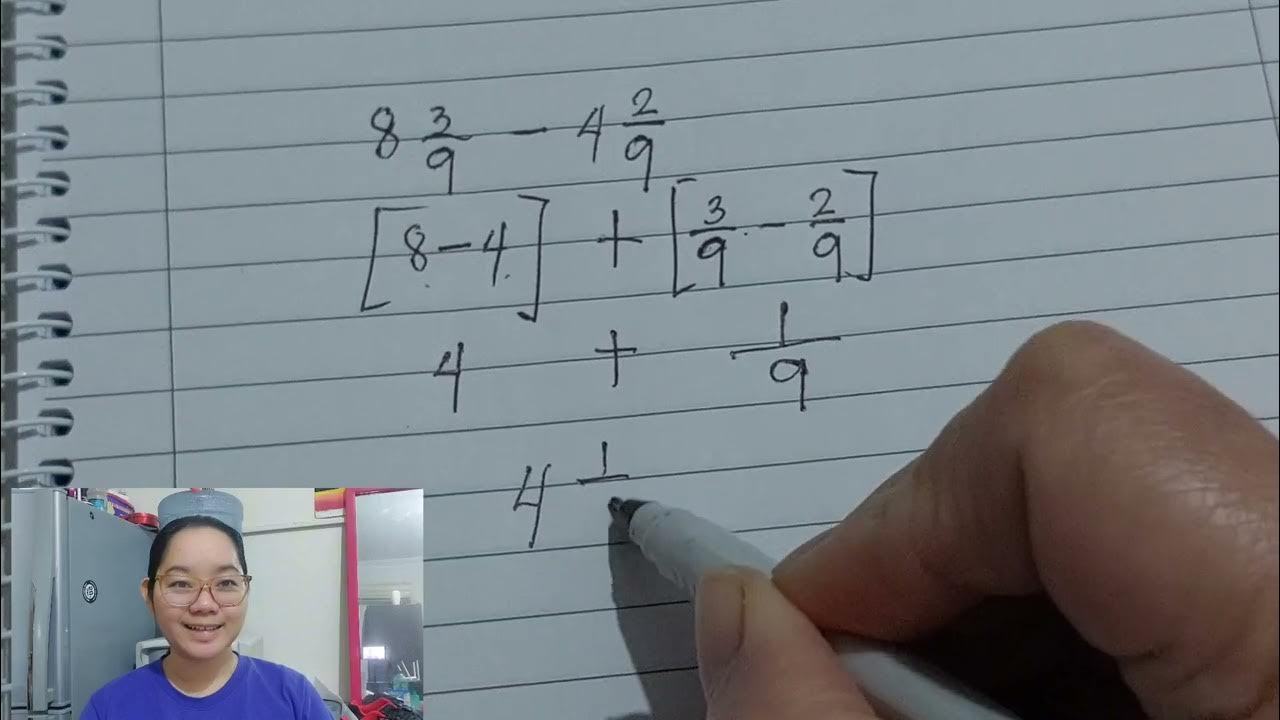 8 3/9 - 4 2/9
[8-4] + [3/9 - 2/9]
4 + 1/9
4 1/